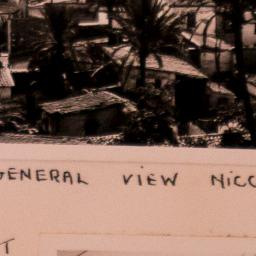 GENERAL VIEW NICO
T